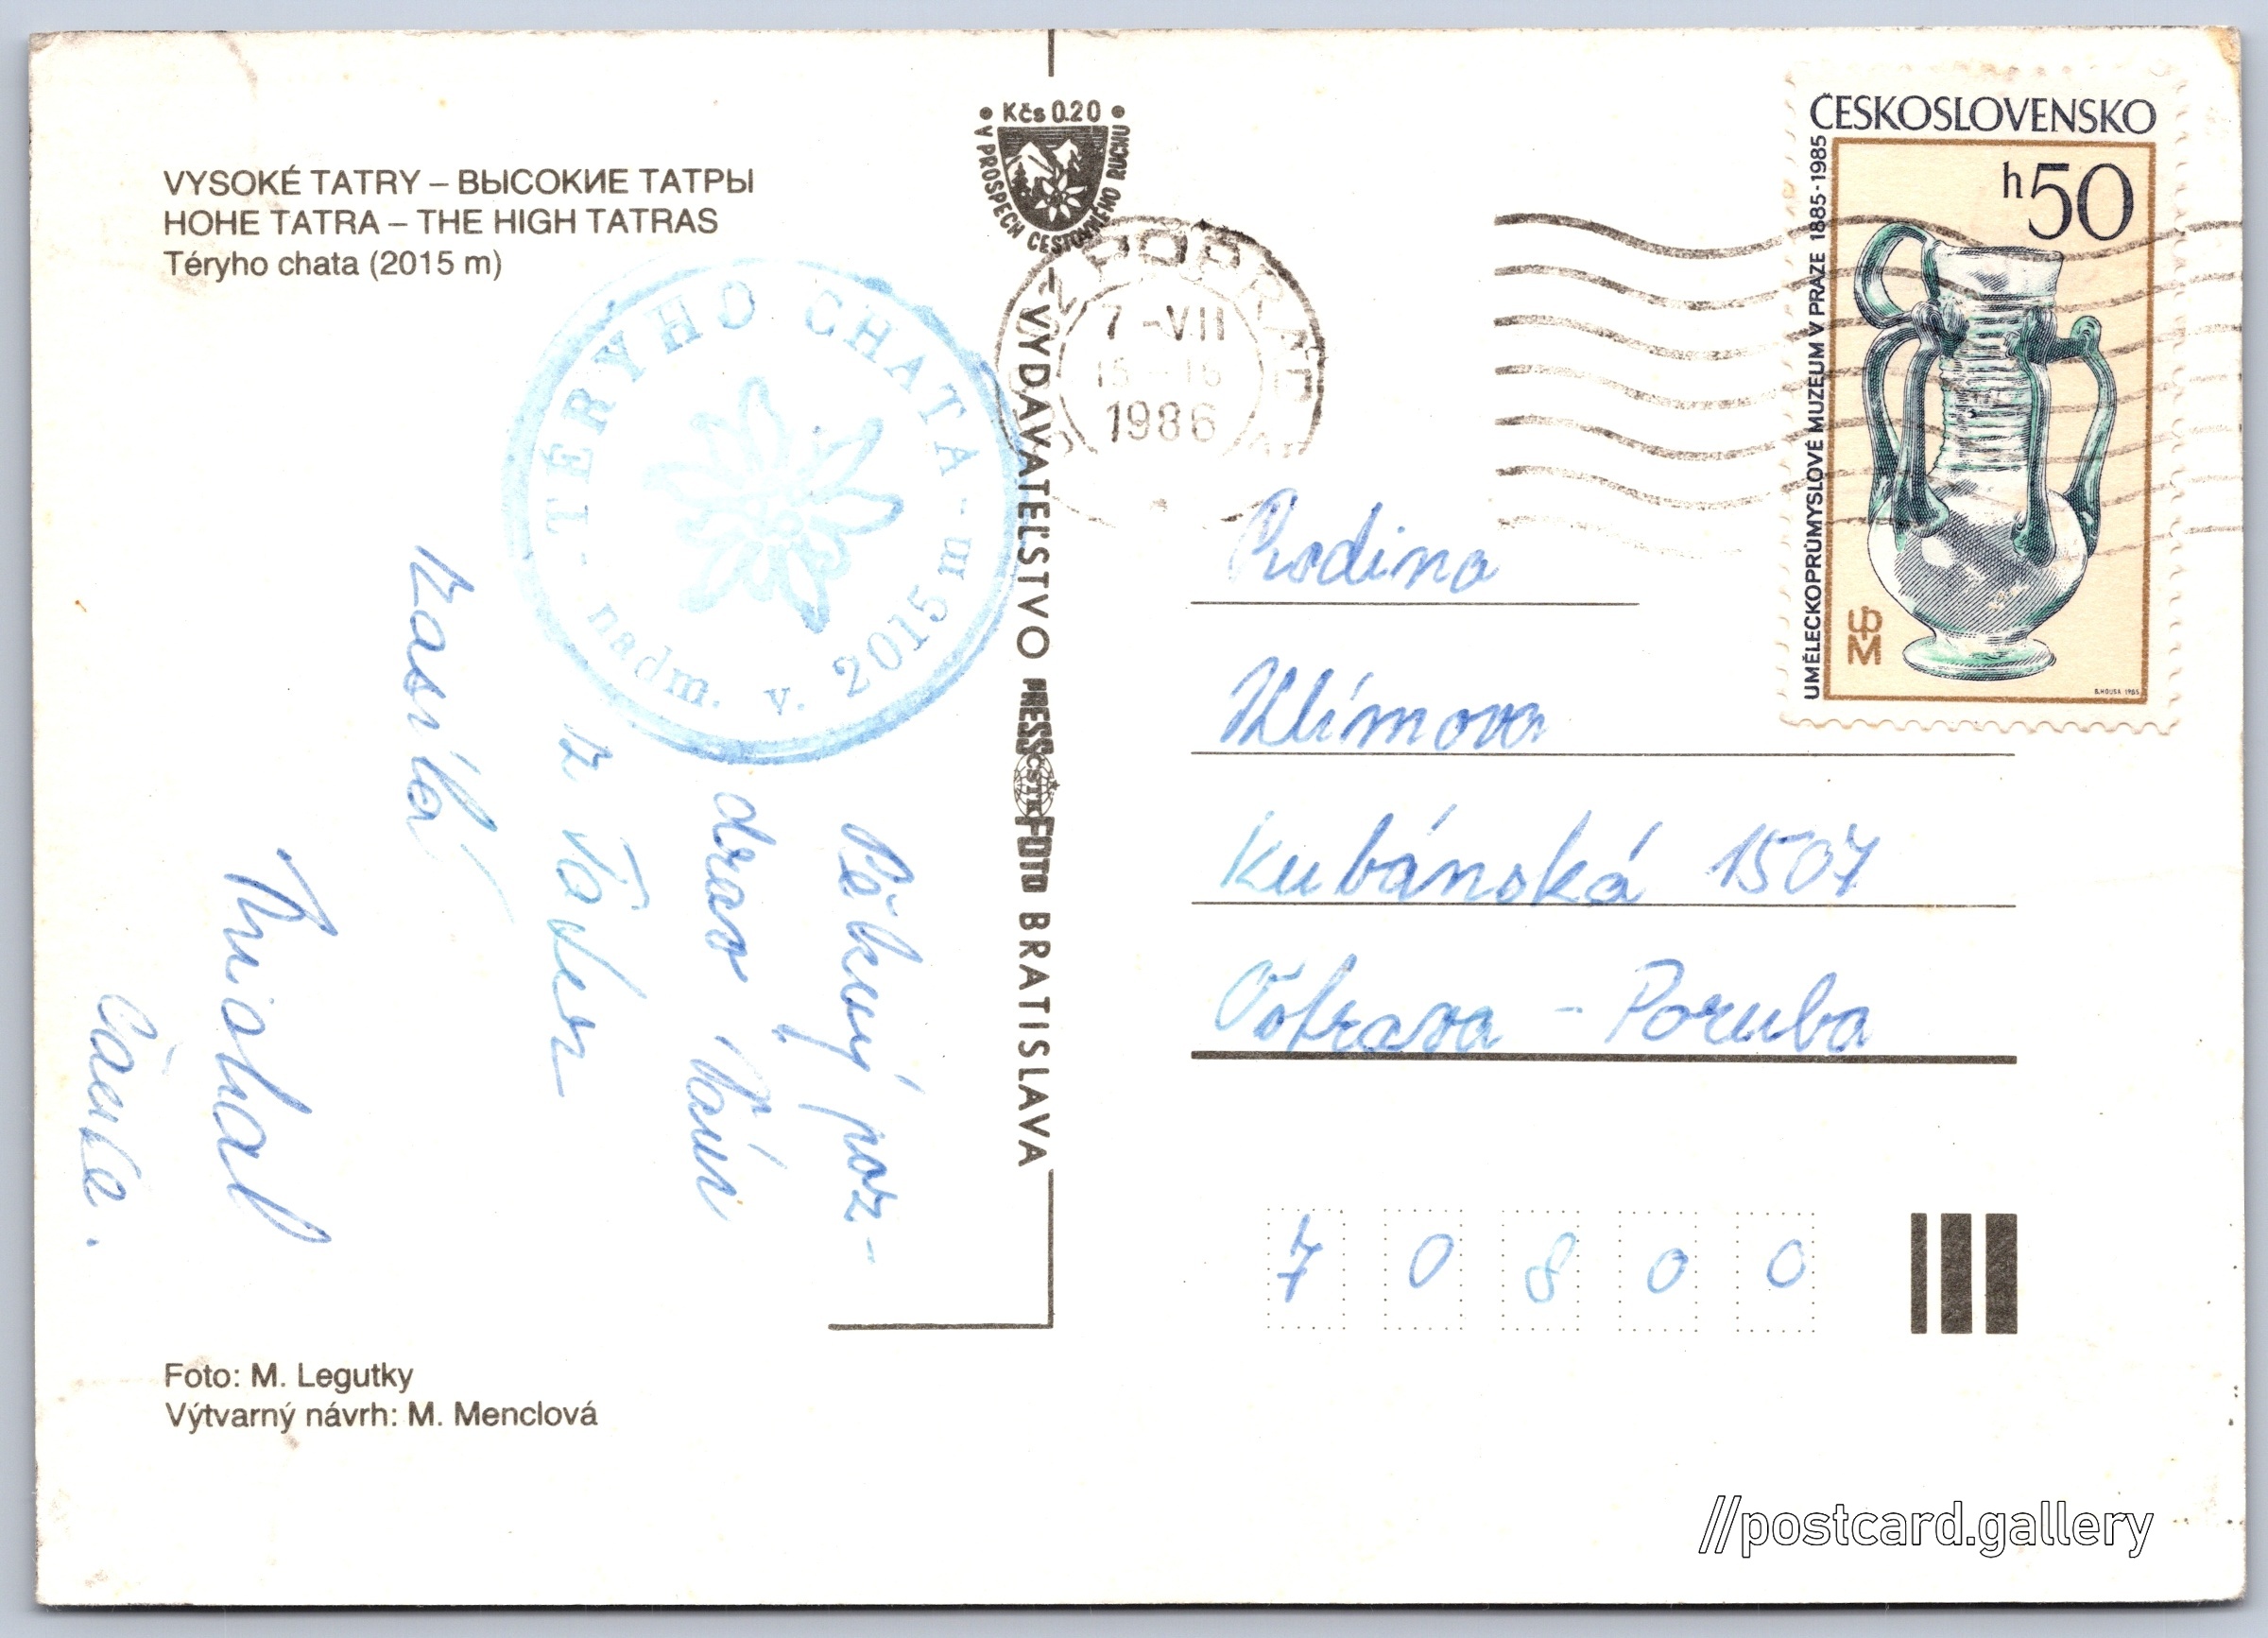 VYSOKÉ TATRY – ВЫСОКИЕ ТАТРЫ
HOHE TATRA – THE HIGH TATRAS
Téryho chata (2015 m)
TÉRYHO CHATA
nadm. v. 2015 m
Pěkný poz-
drav Vám
z Tater
zasílá
Michal
Kčs 0.20
V PROSPECH CESTOVNÉHO RUCHU
VYDAVATEĽSTVO PRESSFOTO BRATISLAVA
ČSTK
POPRAD
7 -VII
15 - 16
1986
ČESKOSLOVENSKO
h50
UMĚLECKOPRŮMYSLOVÉ MUZEUM V PRAZE 1885-1985
UPM
B. HOUSA 1985
Rodina
Klímova
Kubánská 1507
Ostrava - Poruba
7 0 8 0 0
Foto: M. Legutky
Výtvarný návrh: M. Menclová
//postcard.gallery